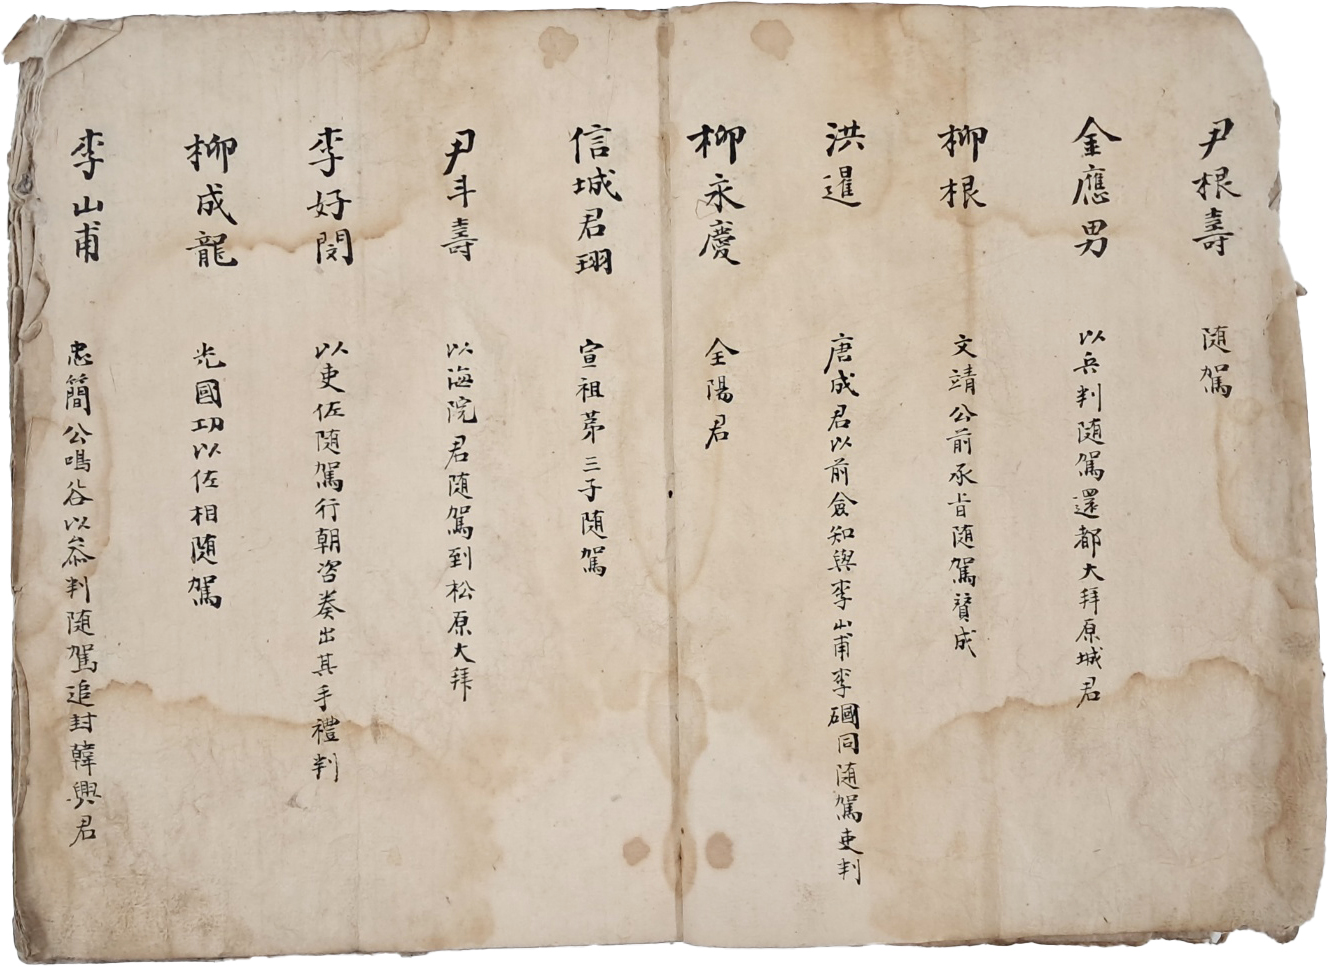 尹根壽 随駕
金應男 以兵判随駕還都大拜原城君
柳根 文靖公前承旨随駕贊成
洪暹 唐成君以前僉知與李山甫李䃲同随駕吏判
柳永慶 全陽君
信城君珝 宣祖第三子随駕
尹斗壽 以海院君随駕到松原大拜
李好閔 以吏佐随駕行朝咨奏出其手禮判
柳成龍 光國功以佐相随駕
李山甫 忠簡公鳴谷以叅判随駕追封韓興君